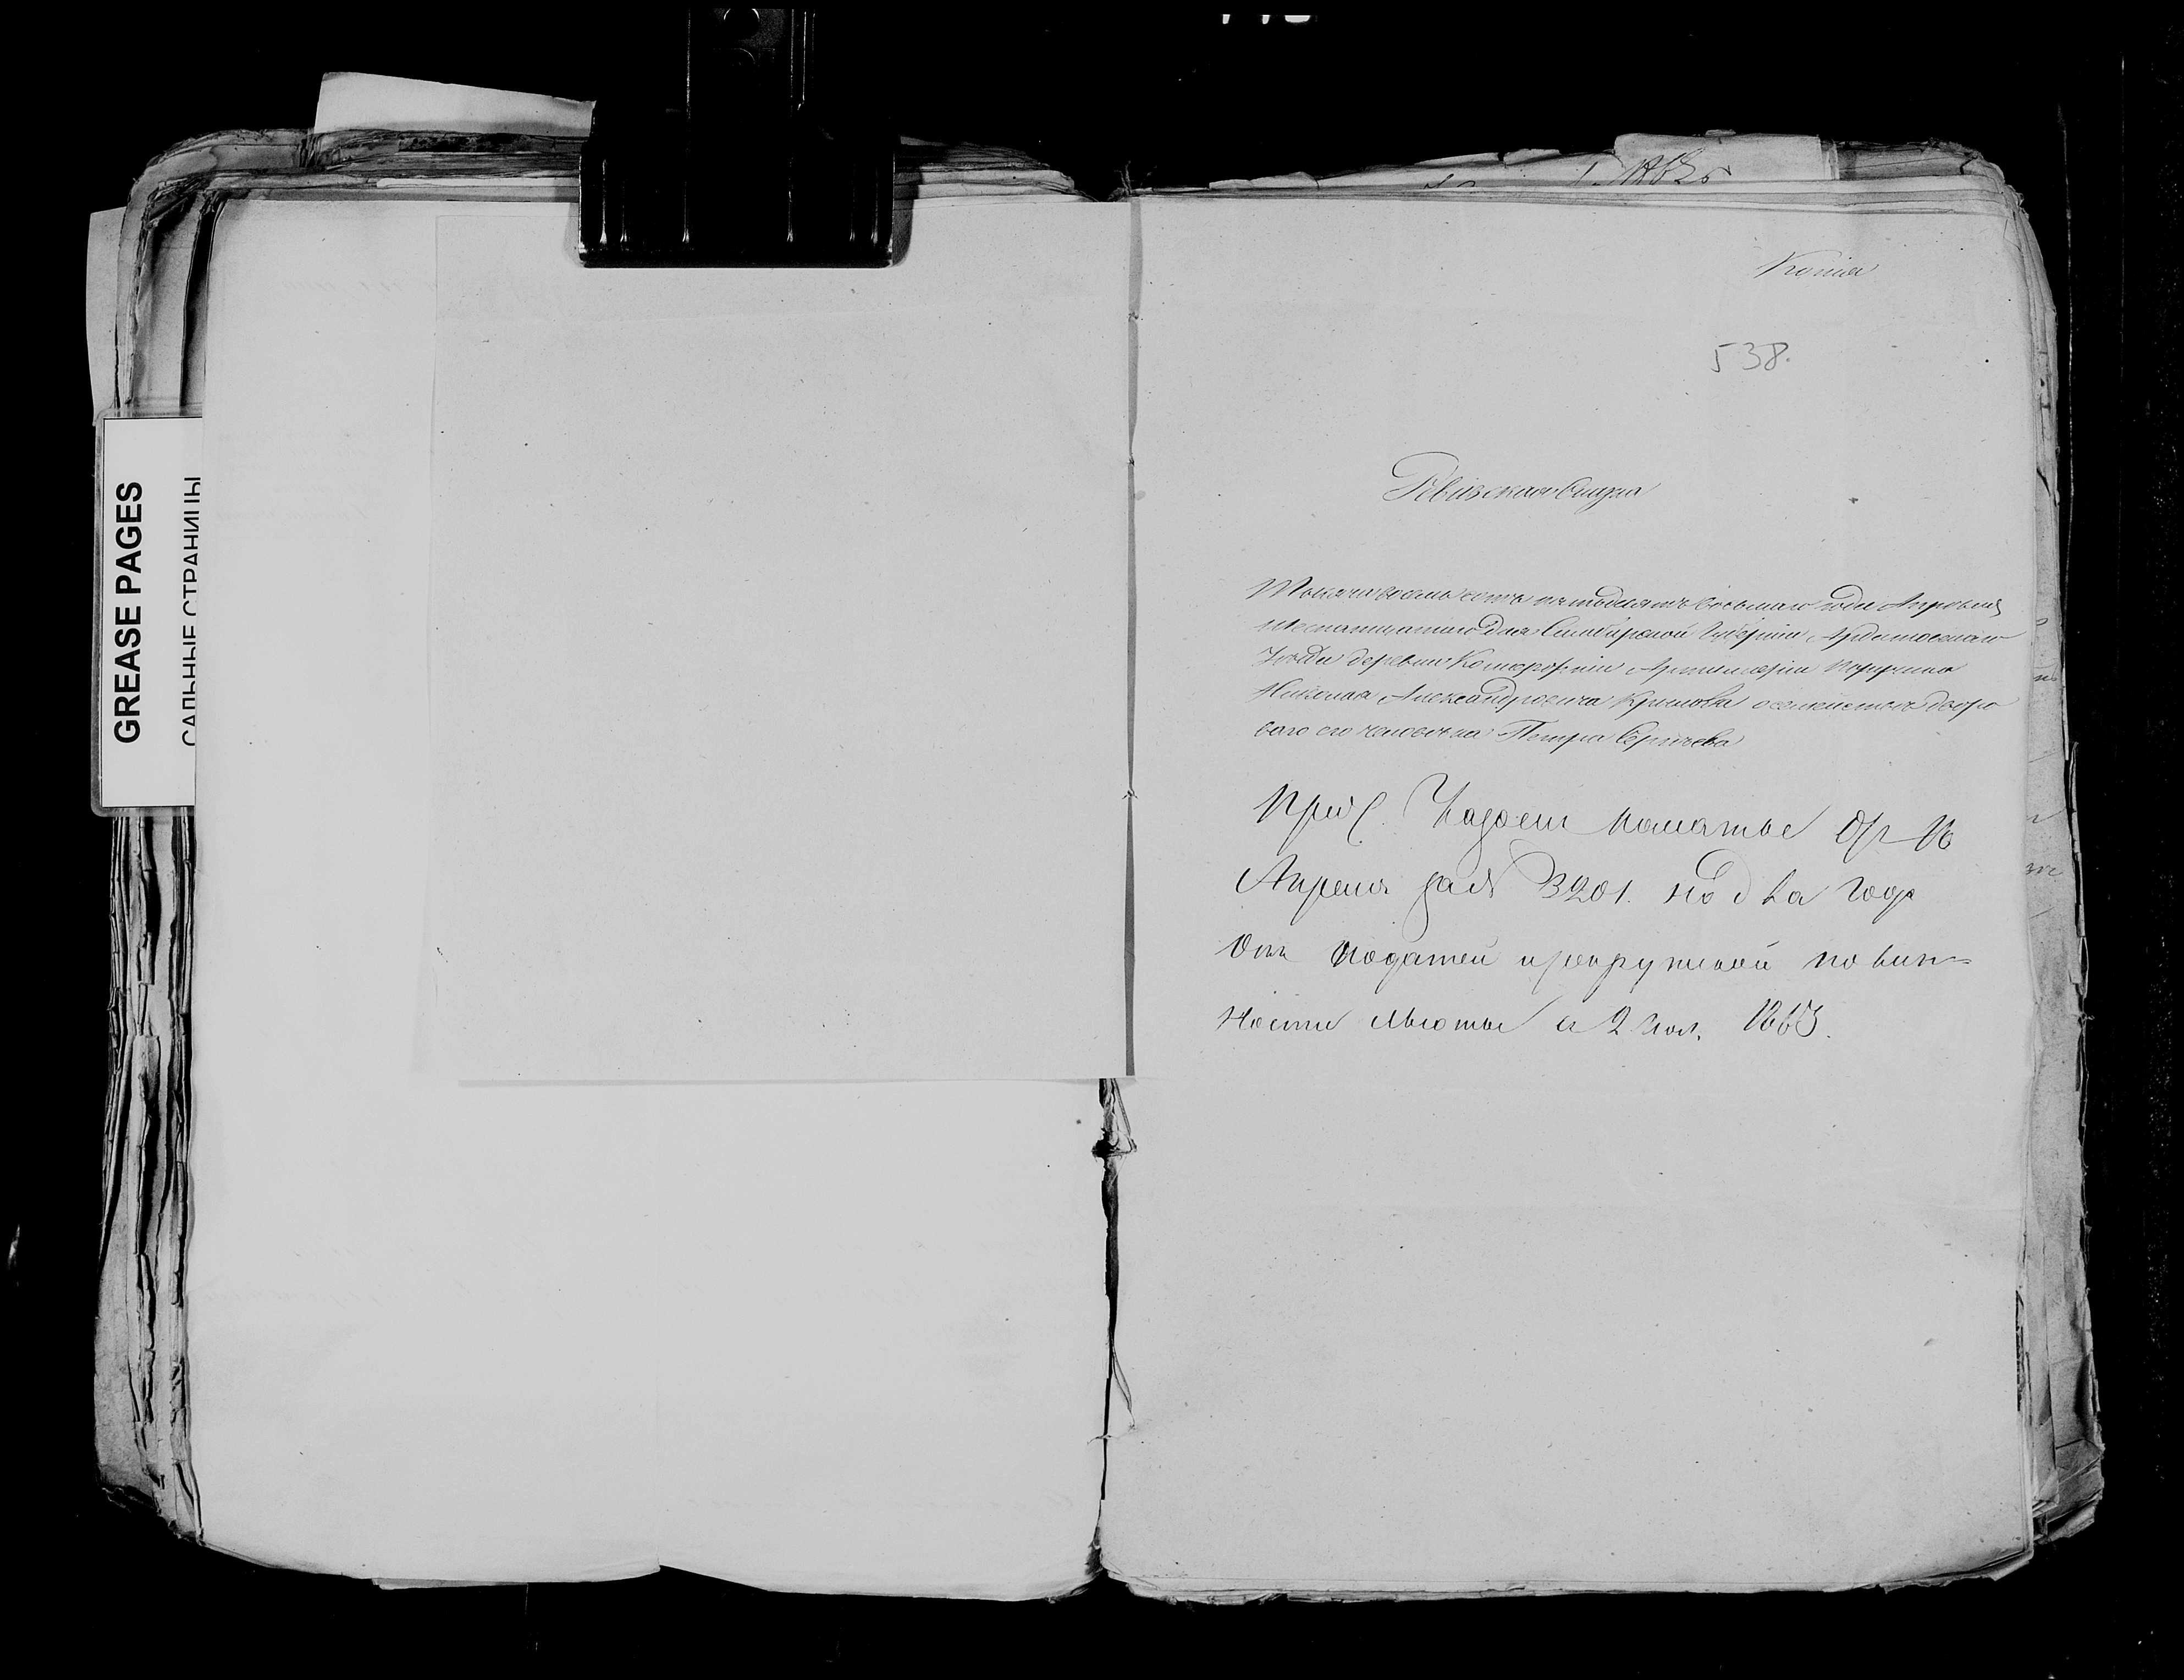 GREASE PAGES
САЛЬНЫЕ СТРАНИЦЫ
Копія
538.
Ревизская Сказка
Тысяча восемь сотъ пятьдесятъ восьмаго года Апреля
шестнатцатаго дня Симбирской Губерніи Ардатовскаго
Уезда деревни Артиллеріи Порутчика
Николая Александровича Крылова о семействе дворо
ваго его человека Петра Сергеева
Прик. Казен палаты От 16
Апреля за № 3201. на два года
отъ податей и рекрутской повин=
ности льготы с 2 пол. 1863.